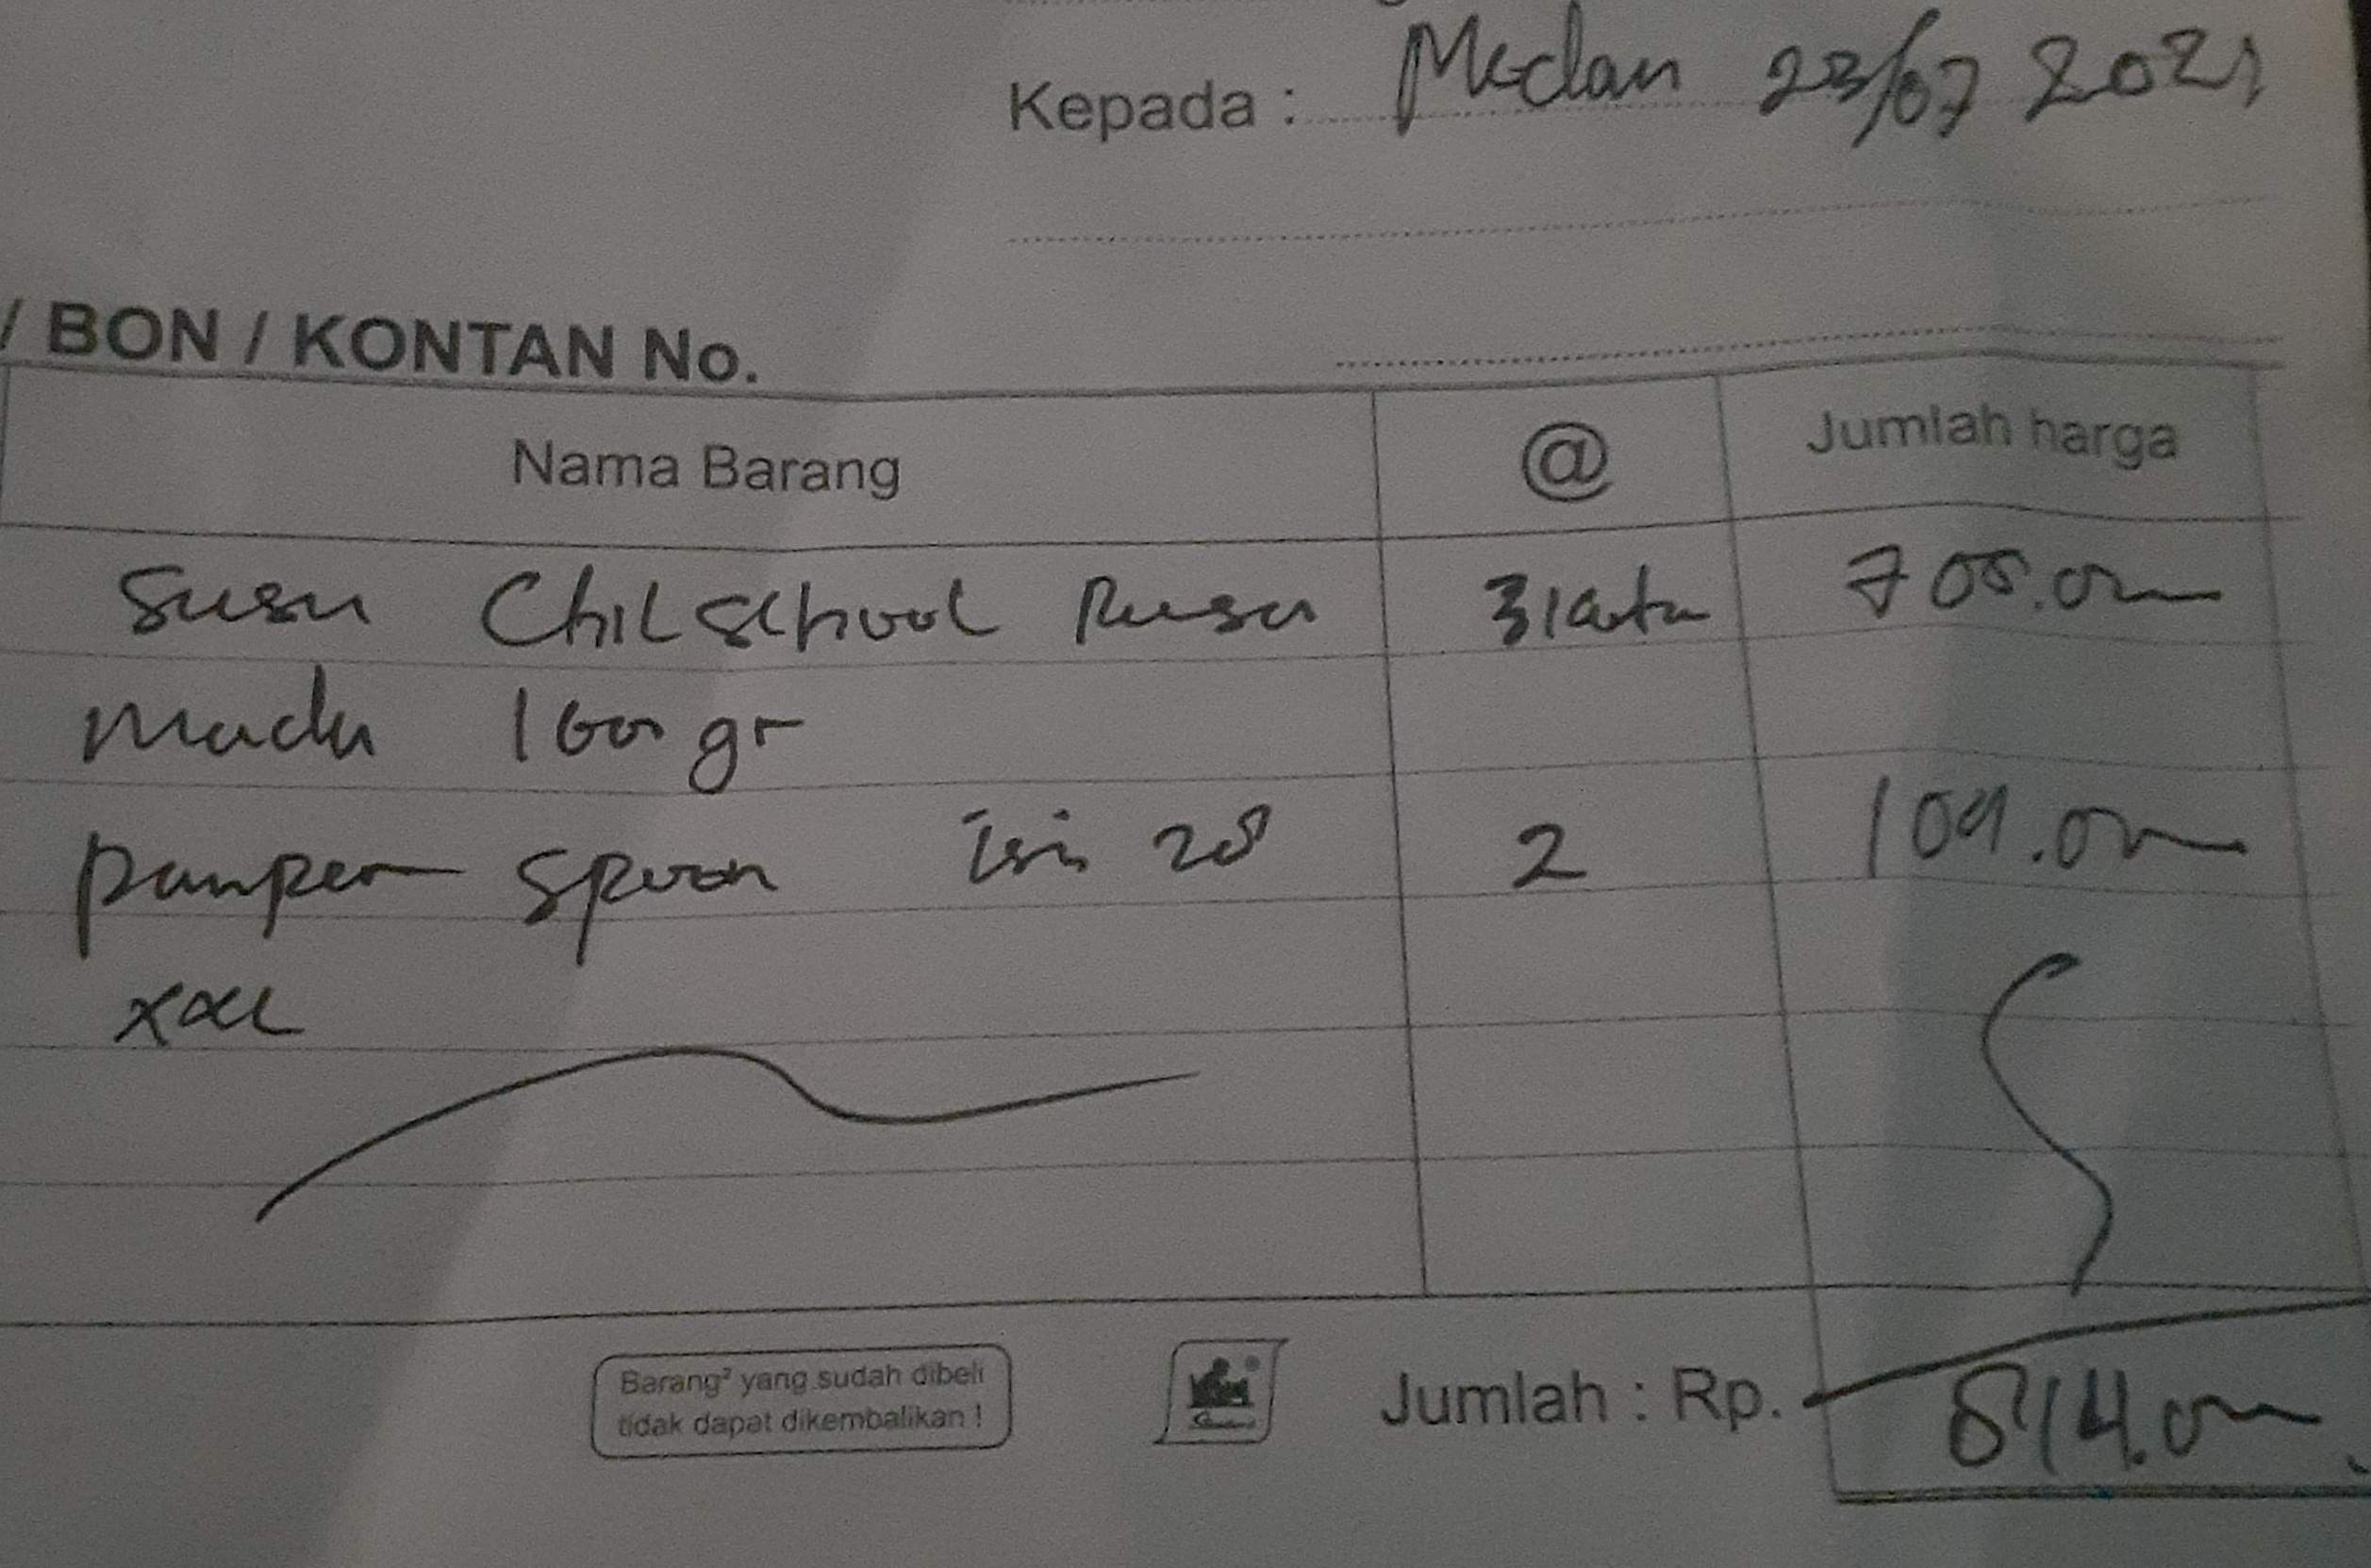 Kepada : Medan 23/07 2021
/ BON / KONTAN No.
Nama Barang @ Jumlah harga
Susu Chil School Rasa 3 kota 705.000
madu 1600 gr
pamper spoon isi 28 2 109.000
XXL
Barang² yang sudah dibeli
tidak dapat dikembalikan !
Jumlah : Rp. 814.000